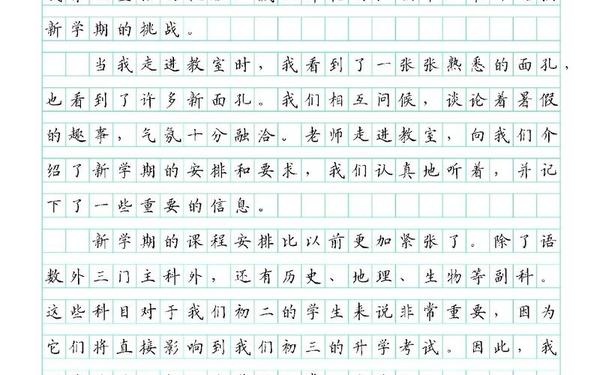 新学期的挑战。
当我走进教室时，我看到了一张张熟悉的面孔，
也看到了许多新面孔。我们相互问候，谈论着暑假
的趣事，气氛十分融洽。老师走进教室，向我们介
绍了新学期的安排和要求，我们认真地听着，并记
下了一些重要的信息。
新学期的课程安排比以前更加紧张了。除了语
数外三门主科外，还有历史、地理、生物等副科。
这些科目对于我们初二的学生来说非常重要，因为
它们将直接影响到我们初三的升学考试。因此，我